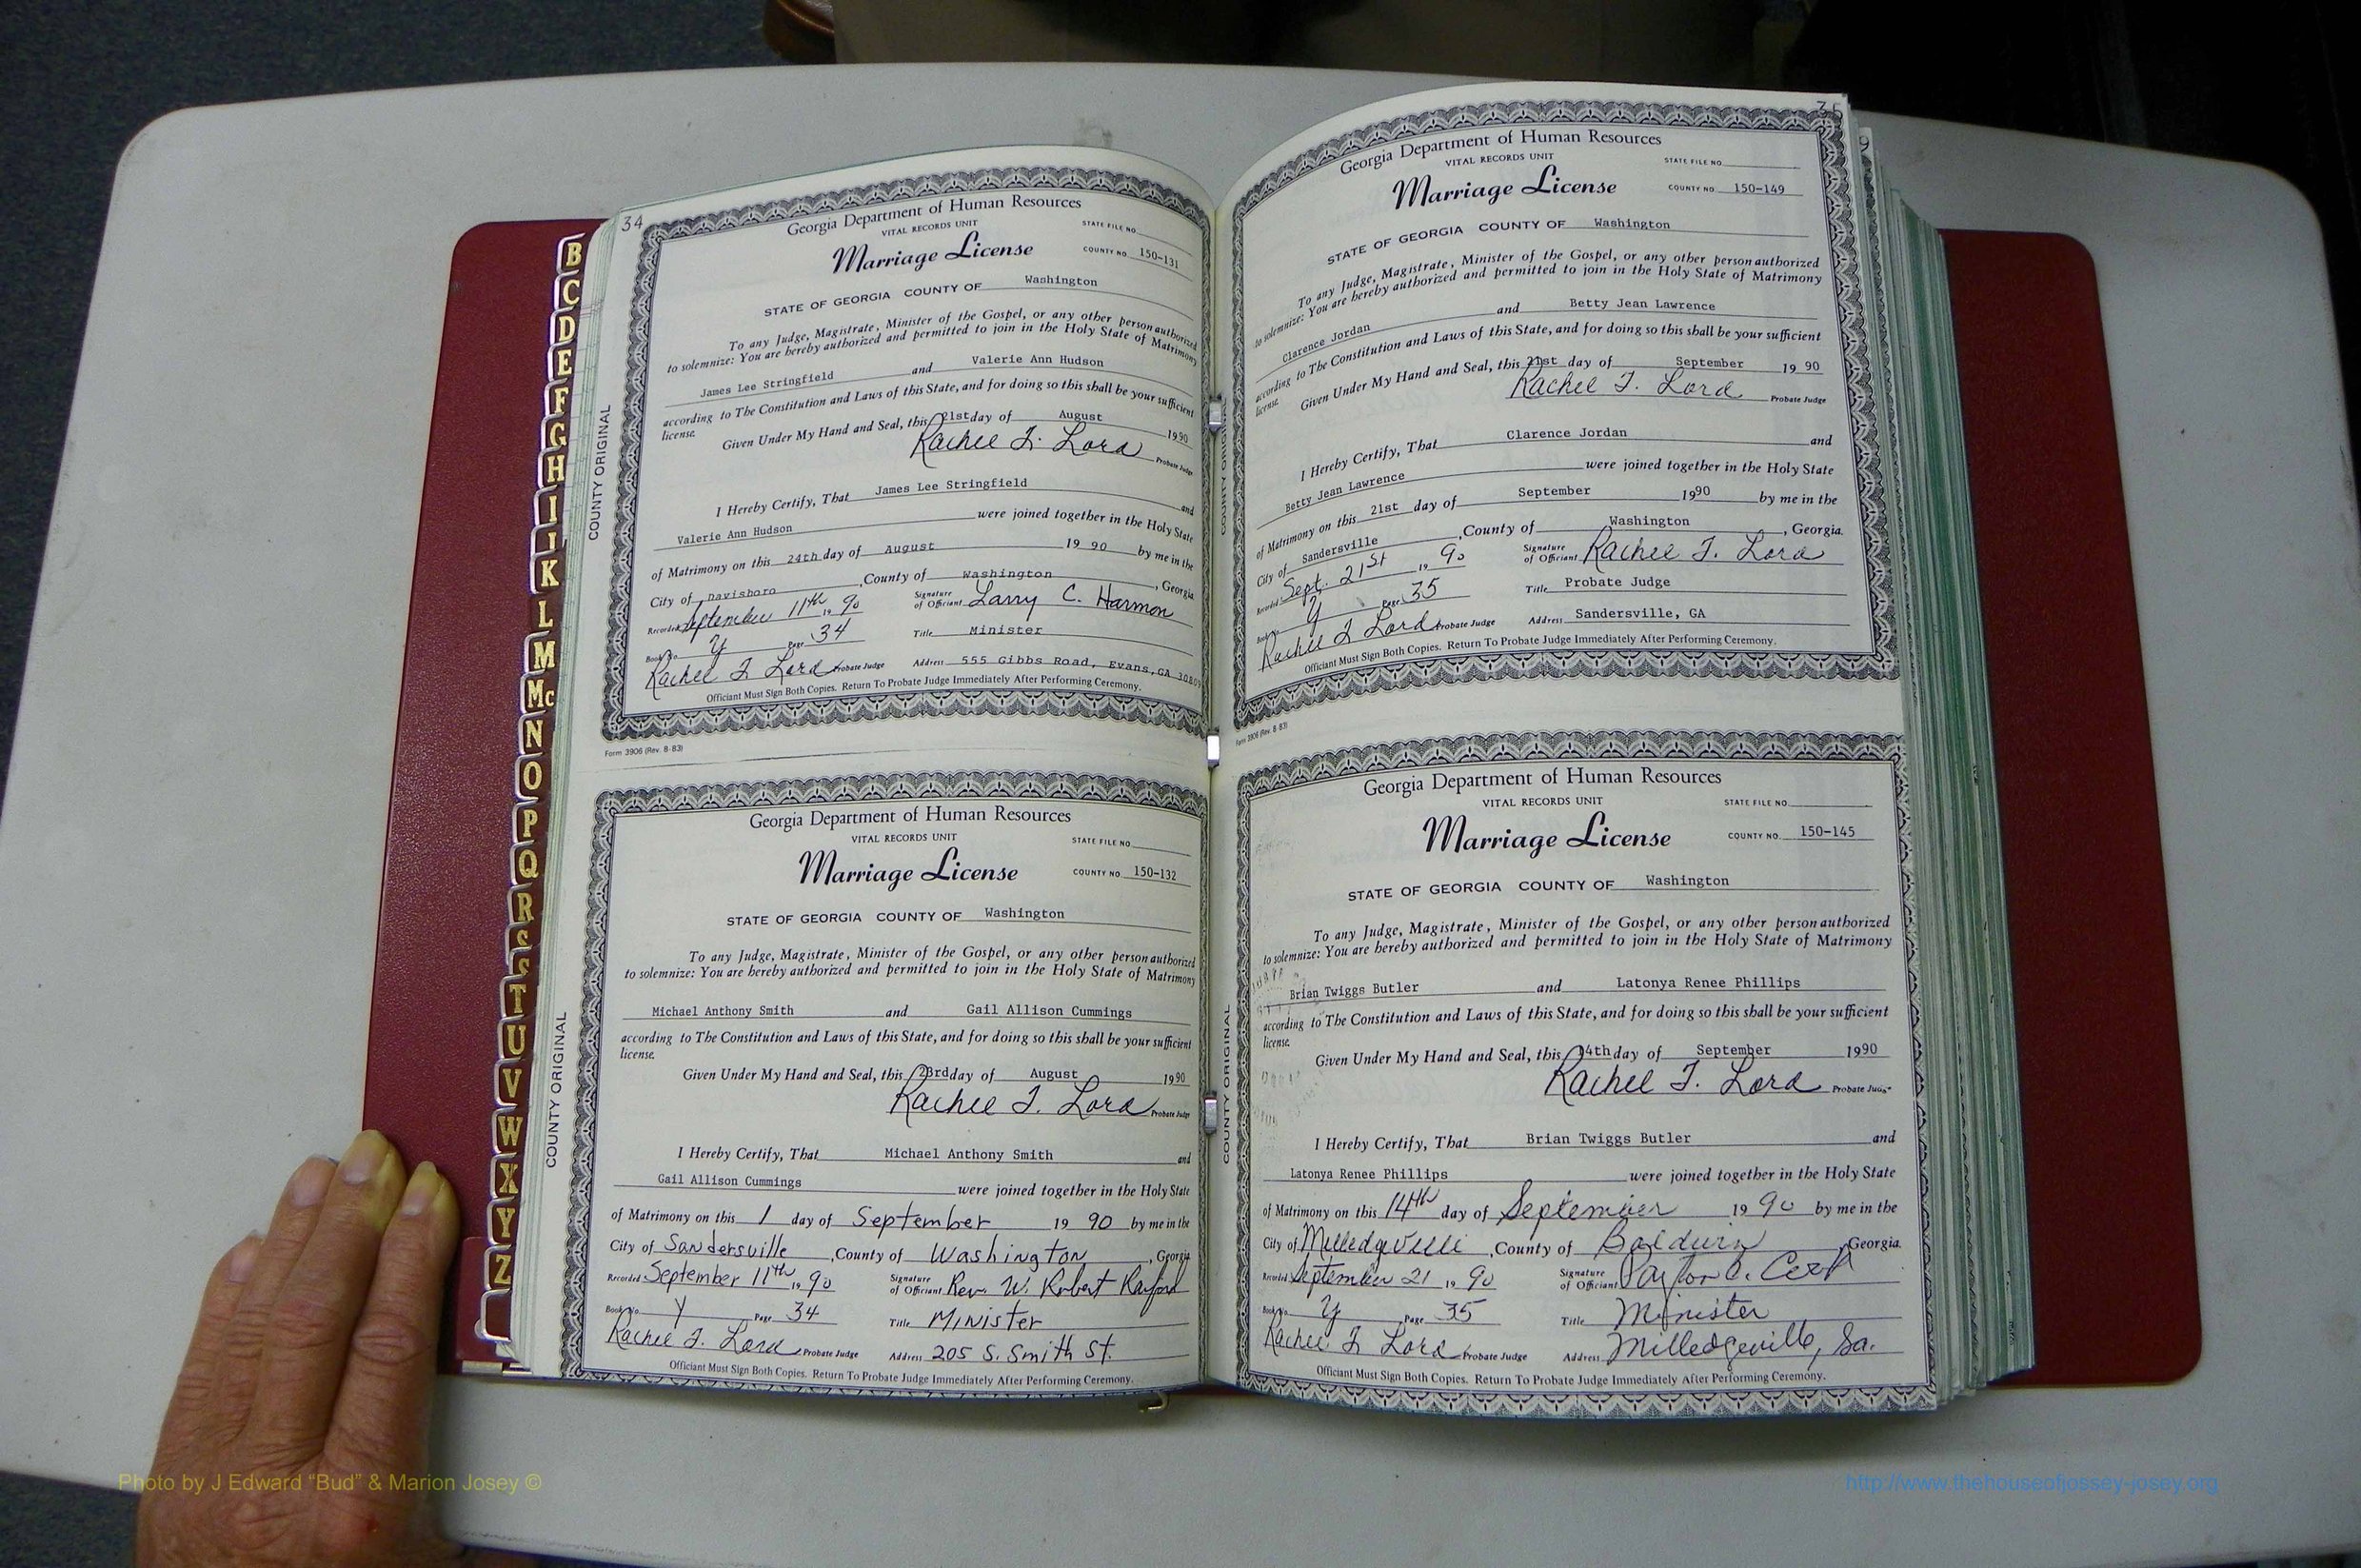 B
C
D
E
F
G
H
I
J
K
L
M
Mc
N
O
P
Q
R
S
T
U
V
W
X
Y
Z
34
COUNTY ORIGINAL
Georgia Department of Human Resources
VITAL RECORDS UNIT
STATE FILE NO.
Marriage License
COUNTY NO. 150-131
STATE OF GEORGIA COUNTY OF Washington
To any Judge, Magistrate, Minister of the Gospel, or any other person authorized
to solemnize: You are hereby authorized and permitted to join in the Holy State of Matrimony
James Lee Stringfield and Valerie Ann Hudson
according to The Constitution and Laws of this State, and for doing so this shall be your sufficient
license.
Given Under My Hand and Seal, this 21st day of August 1990
Rachel T. Lord Probate Judge
I Hereby Certify, That James Lee Stringfield and
Valerie Ann Hudson were joined together in the Holy State
of Matrimony on this 24th day of August 19 90 by me in the
City of Davisboro, County of Washington, Georgia
Recorded September 11th 19 90 Signature of Officiant Larry C. Harmon
Book No. Y Page 34 Title Minister
Rachel T Lord Probate Judge Address 555 Gibbs Road, Evans, GA
Officiant Must Sign Both Copies. Return To Probate Judge Immediately After Performing Ceremony.
Form 3906 (Rev. 8-83)
COUNTY ORIGINAL
Georgia Department of Human Resources
VITAL RECORDS UNIT
STATE FILE NO.
Marriage License
COUNTY NO. 150-132
STATE OF GEORGIA COUNTY OF Washington
To any Judge, Magistrate, Minister of the Gospel, or any other person authorized
to solemnize: You are hereby authorized and permitted to join in the Holy State of Matrimony
Michael Anthony Smith and Gail Allison Cummings
according to The Constitution and Laws of this State, and for doing so this shall be your sufficient
license.
Given Under My Hand and Seal, this 23rd day of August 1990
Rachel T. Lord Probate Judge
I Hereby Certify, That Michael Anthony Smith and
Gail Allison Cummings were joined together in the Holy State
of Matrimony on this 1 day of September 19 90 by me in the
City of Sandersville, County of Washington, Georgia
Recorded September 11th, 19 90 Signature of Officiant Rev. W. Robert Rayford
Book No. Y Page 34 Title Minister
Rachel T. Lord Probate Judge Address 205 S. Smith St.
Officiant Must Sign Both Copies. Return To Probate Judge Immediately After Performing Ceremony.
35
COUNTY ORIGINAL
Georgia Department of Human Resources
VITAL RECORDS UNIT
STATE FILE NO.
Marriage License
COUNTY NO. 150-149
STATE OF GEORGIA COUNTY OF Washington
To any Judge, Magistrate, Minister of the Gospel, or any other person authorized
to solemnize: You are hereby authorized and permitted to join in the Holy State of Matrimony
Clarence Jordan and Betty Jean Lawrence
according to The Constitution and Laws of this State, and for doing so this shall be your sufficient
license.
Given Under My Hand and Seal, this 21st day of September 19 90
Rachel T. Lord Probate Judge
I Hereby Certify, That Clarence Jordan and
Betty Jean Lawrence were joined together in the Holy State
of Matrimony on this 21st day of September 1990 by me in the
City of Sandersville, County of Washington, Georgia.
Recorded Sept. 21st 19 90 Signature of Officiant Rachel T. Lord
Book No. Y Page 35 Title Probate Judge
Rachel T Lord Probate Judge Address Sandersville, GA
Officiant Must Sign Both Copies. Return To Probate Judge Immediately After Performing Ceremony.
Form 3906 (Rev. 8-83)
COUNTY ORIGINAL
Georgia Department of Human Resources
VITAL RECORDS UNIT
STATE FILE NO.
Marriage License
COUNTY NO. 150-145
STATE OF GEORGIA COUNTY OF Washington
To any Judge, Magistrate, Minister of the Gospel, or any other person authorized
to solemnize: You are hereby authorized and permitted to join in the Holy State of Matrimony
Brian Twiggs Butler and Latonya Renee Phillips
according to The Constitution and Laws of this State, and for doing so this shall be your sufficient
license.
Given Under My Hand and Seal, this 14th day of September 1990
Rachel T. Lord Probate Judge
I Hereby Certify, That Brian Twiggs Butler and
Latonya Renee Phillips were joined together in the Holy State
of Matrimony on this 14th day of September 19 90 by me in the
City of Milledgeville, County of Baldwin, Georgia.
Recorded September 21 19 90 Signature of Officiant
Book No. Y Page 35 Title Minister
Rachel T Lord Probate Judge Address Milledgeville, Ga.
Officiant Must Sign Both Copies. Return To Probate Judge Immediately After Performing Ceremony.
Photo by J Edward “Bud” & Marion Josey ©
http://www.thehouseofjossey-josey.org